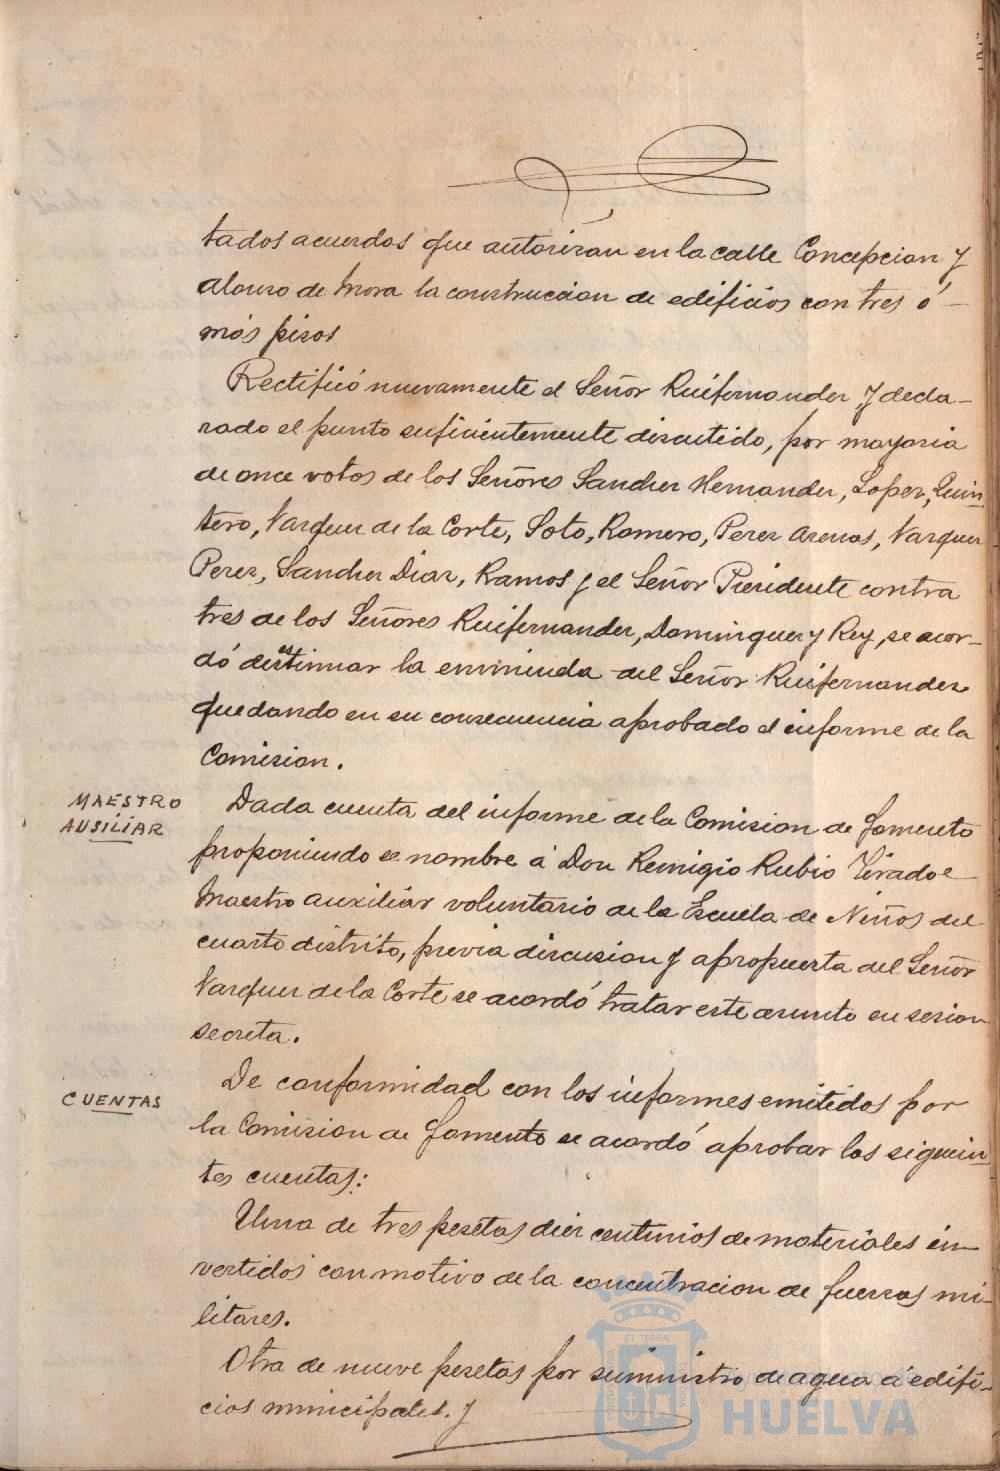 tados acuerdos que autorizan en la calle Concepcion y
Alonso de Mora la construccion de edificios con tres ó
más pisos
Rectificó nuevamente el Señor Ruifernandez y decla-
rado el punto suficientemente discutido, por mayoria
de once votos de los Señores Sanchez Hernandez, Lopez, Quin-
tero, Vazquez de la Corte, Soto, Romero, Perez Arenas, Vazquez
Perez, Sanchez Diaz, Ramos y el Señor Presidente contra
tres de los Señores Ruifernandez, Dominguez y Rey, se acor-
dó desestimar la enmienda del Señor Ruifernandez
quedando en su consecuencia aprobado el informe de la
Comision.
MAESTRO
AUSILIAR
Dada cuenta del informe de la Comision de Fomento
proponiendo se nombre á Don Remigio Rubio Tirado
Maestro auxiliar voluntario de la Escuela de Niños del
cuarto distrito, previa discusion y apropuesta del Señor
Vazquez de la Corte se acordó tratar este asunto en sesion
secreta.
CUENTAS
De conformidad con los informes emitidos por
la Comision de Fomento se acordó aprobar las siguien-
tes cuentas:
Una de tres pesetas diez centimos de materiales in-
vertidos con motivo de la concentracion de fuerzas mi-
litares.
Otra de nueve pesetas por suministro de agua á edifi-
cios municipales. y
HUELVA